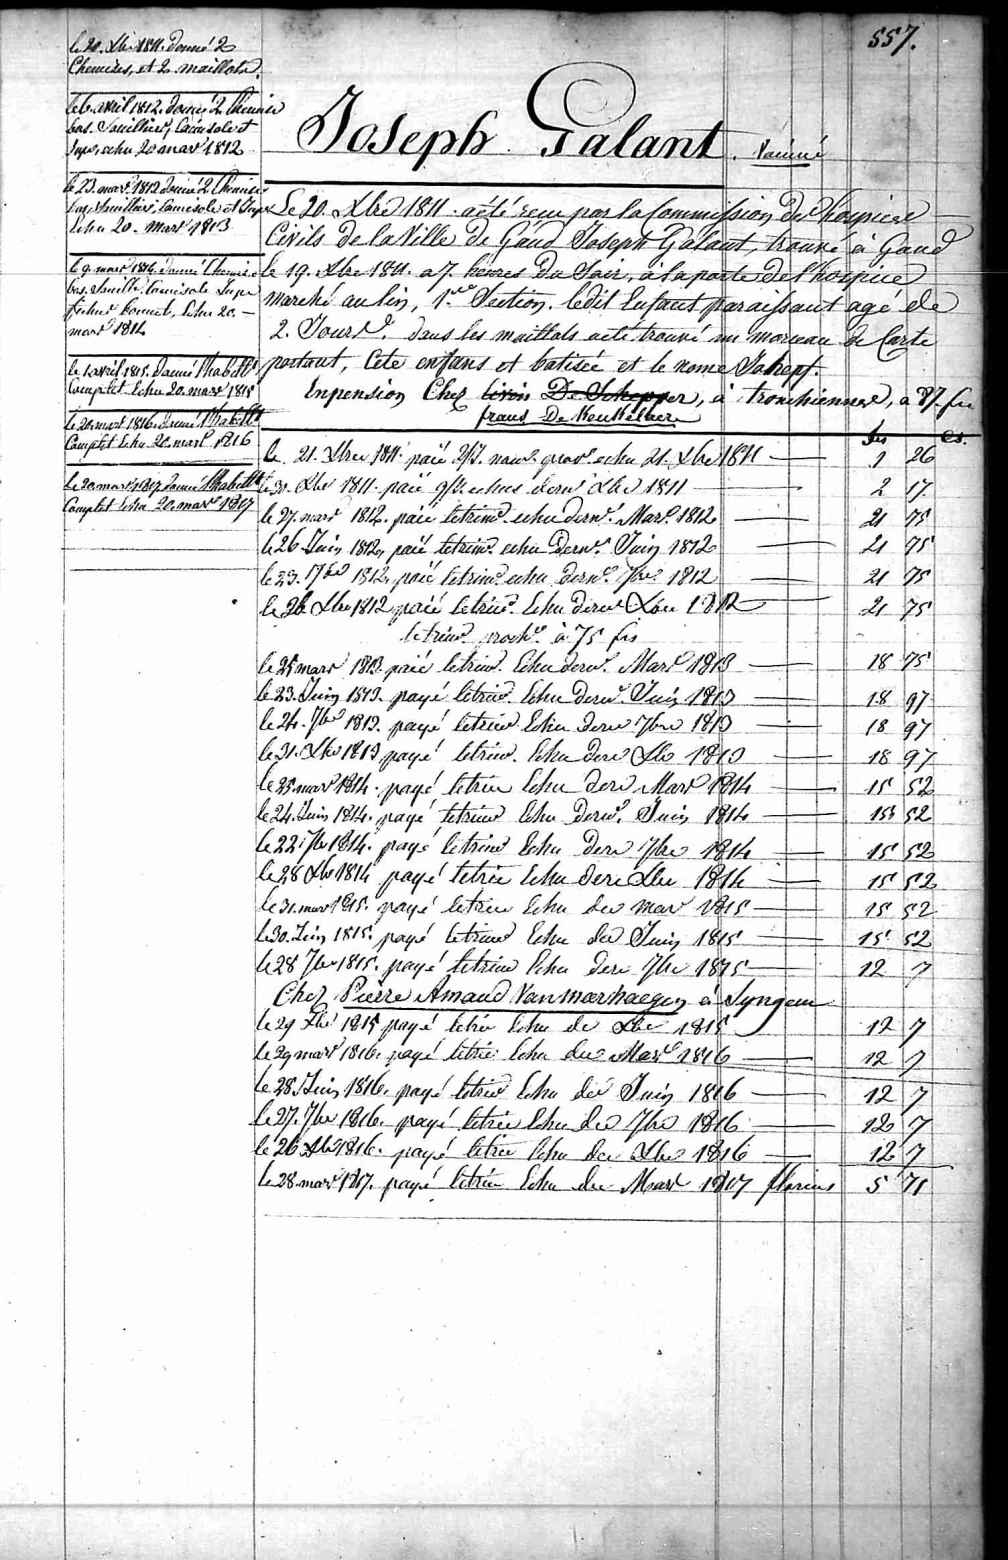 557.
le 20. Xbre 1811. donné 2
Chemises, et 2 maillots.
le 6. avril 1812. donné 2 Chemise
bas. Souilliers, Camisole et
Jupe, echu 20 mars 1812
le 22. mars 1812 donné 2 Chemise
bas, Souilliers, Camisole et Jupe
Echu 20. mars 1813
le 9. mars 1814. donné Chemise
bas. Souillé. Camisole Jupe
fichu bonnet, Echu 20. —
mars 1814
le 1 avril 1815. donné l'habillt
Complet Echu 20. mars 1815
le 20. mars 1816. donné l'habillt
Complet Echu 20. mars 1816
le 20. mars 1817 donné l'habillt
Complet Echu 20. mars 1817
Joseph Galant. Vacciné
Le 20. Xbre 1811. a été reçu par la Commission des hospices —
Civils de la Ville de Gand Joseph Galant, trouvé à Gand
le 19. Xbre 1811. a 7. heures du Soir, à la porte de l'hospice
marché au lin, 1.re Section. ledit Enfant paraissant agé de
2. Jours. dans les maillots a été trouvé un morceau de Carte
portant, Cete enfans et batisée et le nome Joheph.
Enpension Chez livin De Schepper, à tronchiennes, a 87 frs
frans De
frs cs.
le 21. Xbre 1811. paié nour. gros. echu 21. Xbre 1811 — 1 26
le 31. Xbre 1811. paié echus dern Xbre 1811 — 2 17.
le 27. mars 1812. paié letrim. echu dern. Mars. 1812 — 21 75
le 26. Juin 1812, paié letrim. echu Dern. Juin 1812 — 21 75
le 23. 7bre 1812, paié letrim. echu dern. 7bre 1812 — 21 75
le 26 Xbre 1812 paié letrim. Echu dern Xbre 1812 — 21 75
letrim. proch.e à 75 frs
le 25 mars 1813. paié letrim. Echu dern. Mars 1813 — 18 75
le 23. Juin 1813. payé letrim. Echu dern. Juin 1813 — 18 97
le 24. 7bre 1813. payé letrim Echu dern 7bre 1813 — 18 97
le 31. Xbre 1813 payé letrim. Echu dern Xbr 1813 — 18 97
le 25 mars 1814. payé letrim Echu dern Mars 1814 — 15 52
le 24. Juin 1814. payé letrim Echu dern. Juin 1814 — 15 52
le 22 7br 1814. payé letrim Echu dern 7bre 1814 — 15 52
le 28 Xbr 1814 payé letrim Echu dern Xbre 1814 — 15 52
le 31. mars 1815. payé letrim Echu der mars 1815 — 15 52
le 30. Juin 1815. payé letrim Echu der Juin 1815 — 15 52
le 28 7br 1815. payé letrim Echu dern 7bre 1815 — 12 7
Chez Pierre Amand Vanmoerhaegen à Syngem
le 29 Xbr 1815 payé letrim Echu de Xbre 1815 12 7
le 29 mars 1816. payé letrim Echu der Mars 1816 — 12 7
le 28. Juin 1816. payé letrim Echu der Juin 1816 — 12 7
le 27. 7br 1816. payé letrim Echu der 7bre 1816 — 12 7
le 26 Xbr 1816. payé letrim Echu der Xbre 1816 — 12 7
le 28. mars 1817. payé letrim Echu der Mars 1817 florins 5 71